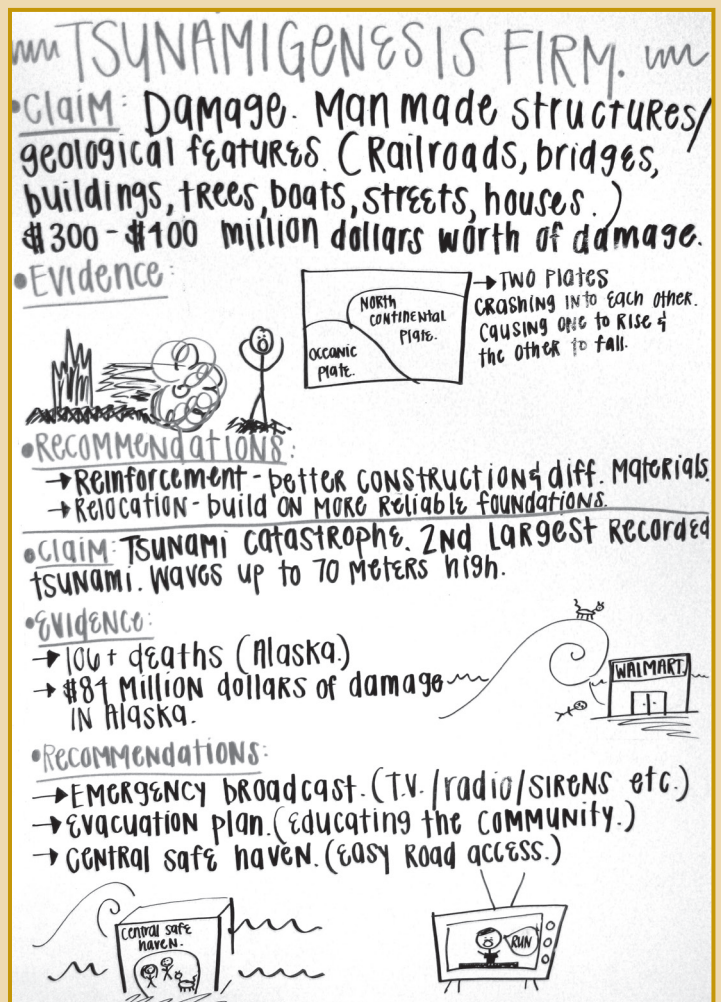 TSUNAMIGENESIS FIRM.
•Claim: Damage. Man made structures/
geological features. (Railroads, bridges,
buildings, trees, boats, streets, houses.)
$300-$400 million dollars worth of damage.
•Evidence:
NORTH
CONTINENTAL
Plate.
OCEANIC
Plate.
→TWO Plates
CRASHING INto Each Other.
Causing ONE to Rise &
the Other to fall.
•Recommendations:
→Reinforcement-better CONStRuction & diff. Materials.
→Relocation-build ON MORE Reliable foundations.
•Claim: Tsunami catastrophe. 2nd Largest Recorded
tsunami. Waves up to 70 Meters high.
•Evidence:
→106+ deaths (Alaska.)
→$84 Million dollars of damage
IN Alaska.
WALMART.
•Recommendations:
→Emergency broadcast. (T.V./radio/SIRENS etc.)
→Evacuation plan. (Educating the community.)
→Central safe haven. (Easy Road access.)
Central safe
haven.
RUN